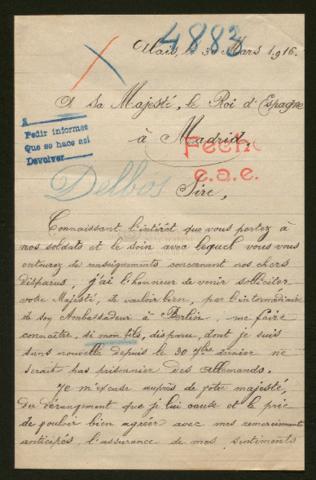 4883
le 30 Mars 1916.
A sa Majesté, le Roi d'Espagne
à Madrid,
Pedir informes
Que se hace así
Devolver
Fecho
e.a.e.
Delbos
Sire,
Connaissant l'intérêt que vous portez à
nos soldats et le soin avec lequel vous vous
entourez de renseignements concernant nos chers
disparus, j'ai l'honneur de venir solliciter
votre Majesté, de vouloir bien, par l'intermédiaire
de son Ambassadeur à Berlin, me faire
connaître, si mon fils, disparu, dont je suis
sans nouvelle depuis le 30 7bre dernier ne
serait pas prisonnier des allemands.
Je m'excuse auprès de votre majesté,
du dérangement que je lui cause et la prie
de vouloir bien agréer avec mes remerciements
anticipés, l'assurance de mes sentiments